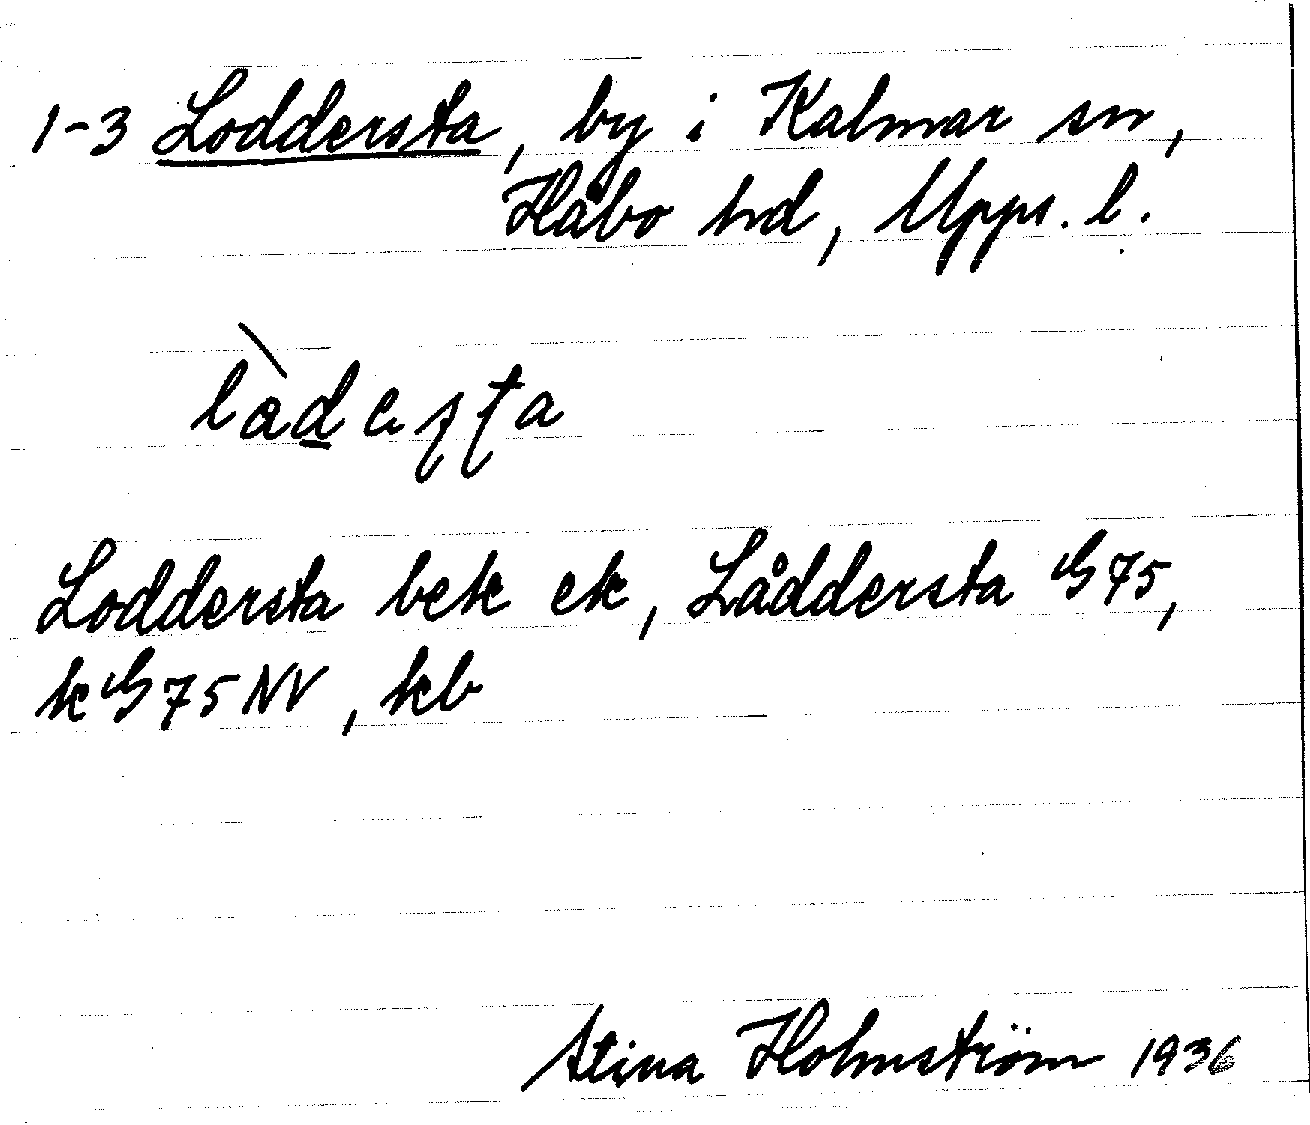 1-3 Loddersta, by i Kalmar sn,
Håbo hd, Upps. l.
Loddersta bek ek, Låddersta G 75,
k G 75 NV, kb
Stina Holmström 1936